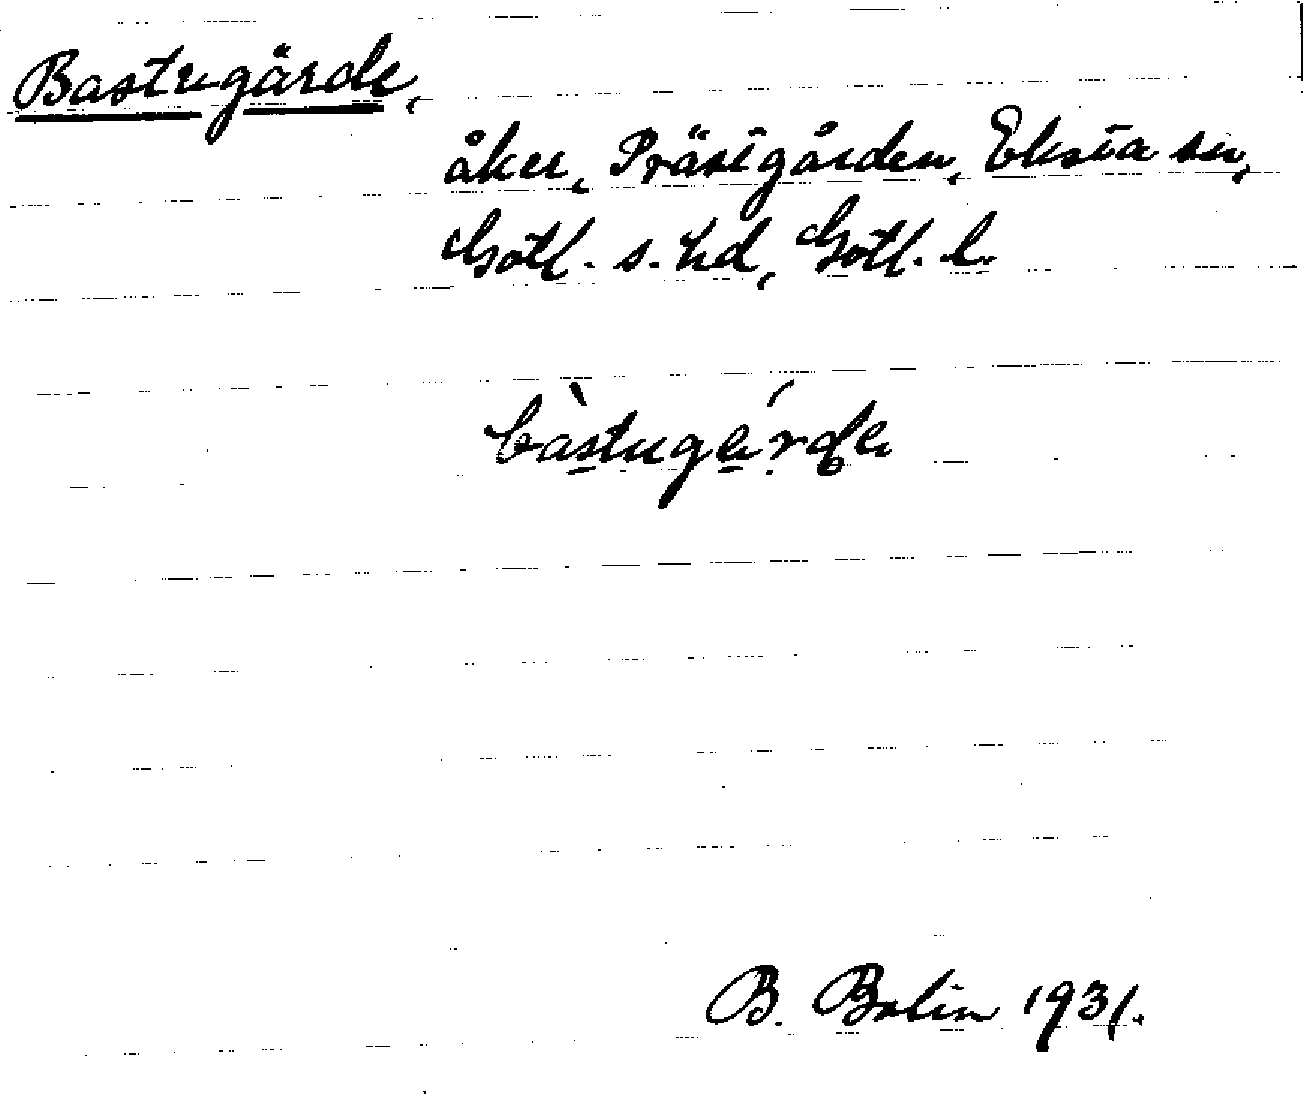 Bastugärde,
åker, Prästgården, Eksta sn,
Gotl. s. hd, Gotl. l.
bàstugérde
B. Bolin 1931.